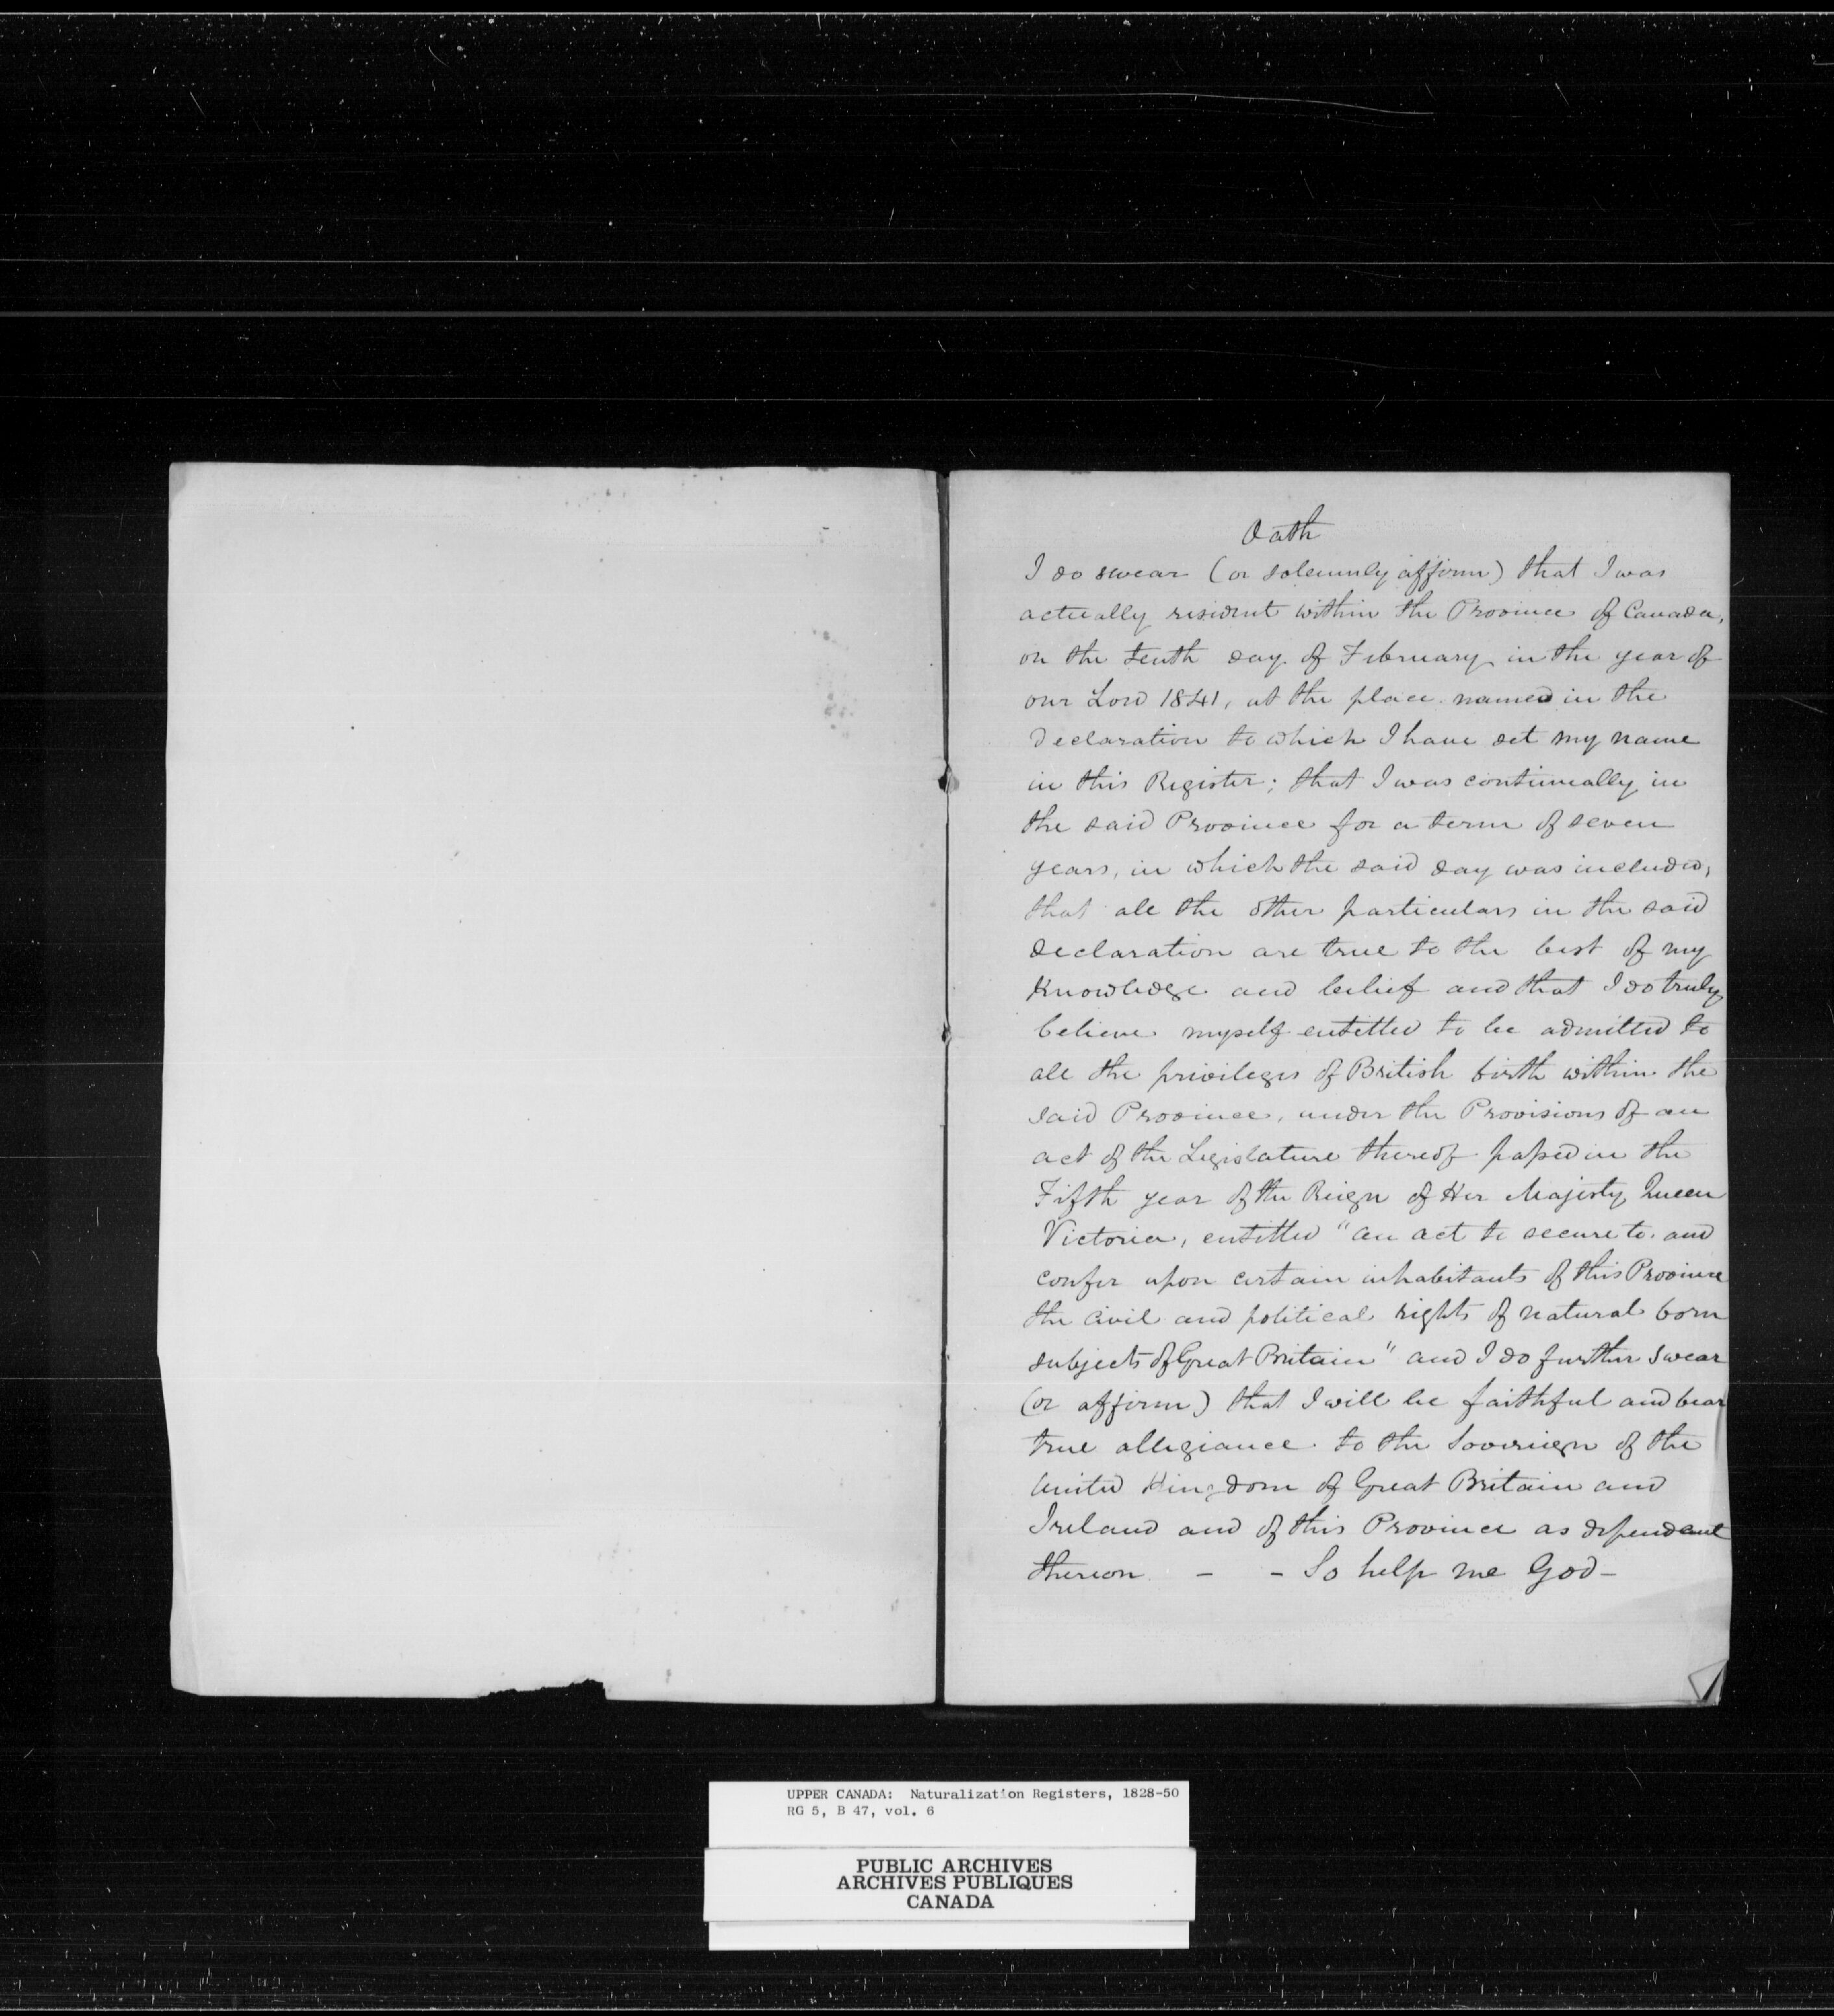 Oath
I do swear (or solemnly affirm) that I was
actually resident within the Province of Canada,
on the tenth day of February in the year of
our Lord 1841, at the place named in the
Declaration to which I have set my name
in this Register; that I was continually in
the said Province for a term of seven
years, in which the said day was included,
that all the other particulars in the said
declaration are true to the best of my
knowledge and belief and that I do truly
believe myself entitled to be admitted to
all the privileges of British birth within the
said Province, under the Provisions of an
act of the Legislature thereof passed in the
Fifth year of the Reign of Her Majesty Queen
Victoria, entitled "an act to secure to and
confer upon certain inhabitants of this Province
the civil and political rights of natural born
subjects of Great Britain" and I do further swear
(or affirm) that I will be faithful and bear
true allegiance to the Sovereign of the
United Kingdom of Great Britain and
Ireland and of this Province as dependent
thereon - - So help me God -
UPPER CANADA: Naturalization Registers, 1828-50
RG 5, B 47, vol. 6
PUBLIC ARCHIVES
ARCHIVES PUBLIQUES
CANADA